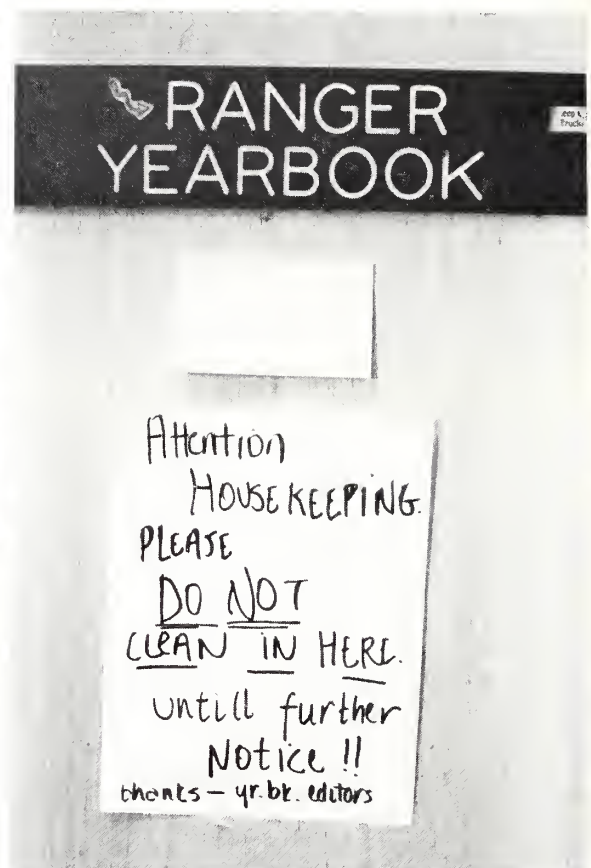 RANGER
YEARBOOK
Attention
HOUSEKEEPING.
PLEASE
DO NOT
CLEAN IN HERE.
untill further
Notice !!
thanks — yr. bk. editors